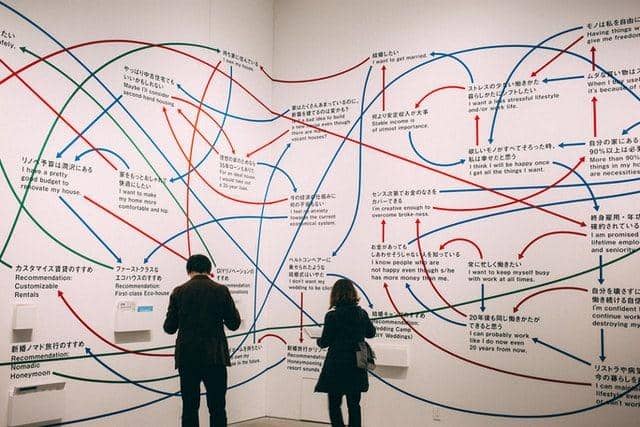 safely.
やっぱり中古住宅でも
いいかもしれない
Maybe I'll consider
second-hand housing.
持ち家に住んでいる
I own my house.
家はたくさんあまっているのに、
新築を建てるのは変かも?
a bad idea to build
a new house even though
there are many
vacant houses?
リノベ予算は潤沢にある
I have a pretty
good budget to
renovate my house.
家をもっとおしゃれで
快適にしたい
I want to make
my home more
comfortable and hip.
理想の家のためなら
35年ローンもあり
For an ideal house,
I would take out
a 35-year loan.
今の経済の仕組みに
I feel no anxiety
towards the current
economical system.
カスタマイズ賃貸のすすめ
Recommendation:
Customizable
Rentals
ファーストクラスな
エコハウスのすすめ
Recommendation:
First-class Eco-house
DIYリノベーションの
ヘルトコンベアーに
乗せられたような
結婚式はいやだ
I don't want my
wedding to be
新婚ノマド旅行のすすめ
Recommendation:
Nomadic
Honeymoon
in the future.
Recommendation:
resort
結婚したい
I want to get married.
何より安定収入が大事
Stable income is
of utmost importance.
ストレスの少ない働きかた
暮らしかたにシフトしたい
I want a less stressful lifestyle
and/or work life.
欲しいモノがすべてそろった時、
私は幸せだと思う
I think I will be happy once
I get all the things I want.
センス次第でお金のなさを
カバーできる
I'm creative enough to
overcome broke-ness.
お金があっても
しあわせそうじゃない人を知っている
I know people who are
not happy even though s/he
has more money than me.
常に忙しく働きたい
I want to keep myself busy
with work at all times.
20年後も同じ働きかたが
できると思う
I can probably work
like I do now even
20 years from now.
Recommendation:
Wedding Camp
(DIY Weddings)
モノは私を自由に
Having things
give me freedom
ムダな買い物は
When I buy
it's because of
自分の家にある
90%以上は必
More than 90%
things in my ho
are necessities
終身雇用・年
確約されている
I am promised
lifetime emplo
and seniority
自分を壊さず
働き続ける自
I'm confident
continue work
destroying my
リストラや病気
今の暮らしを
I can main
lifestyle eve
or can't work